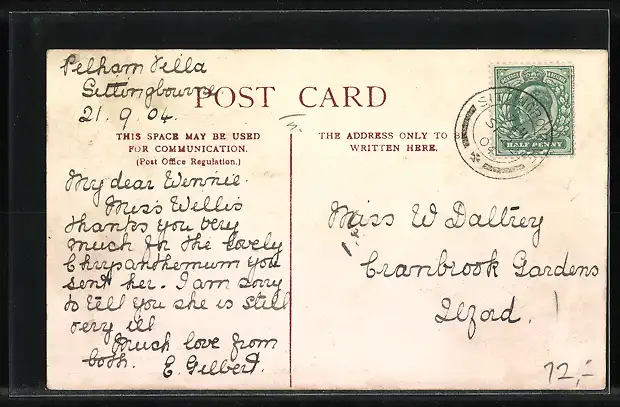 Pelham Villa
Sittingbourne
21.9.04.
POST CARD
THIS SPACE MAY BE USED
FOR COMMUNICATION.
(Post Office Regulation.)
My dear Winnie.
Miss Willis
thanks you very
much for the lovely
Chrysanthemum you
sent her. I am sorry
to tell you she is still
very ill
Much love from
both. E. Gilbert.
THE ADDRESS ONLY TO BE
WRITTEN HERE.
Miss W Daltrey
Cranbrook Gardens
Ilford.
HALF PENNY
12,-